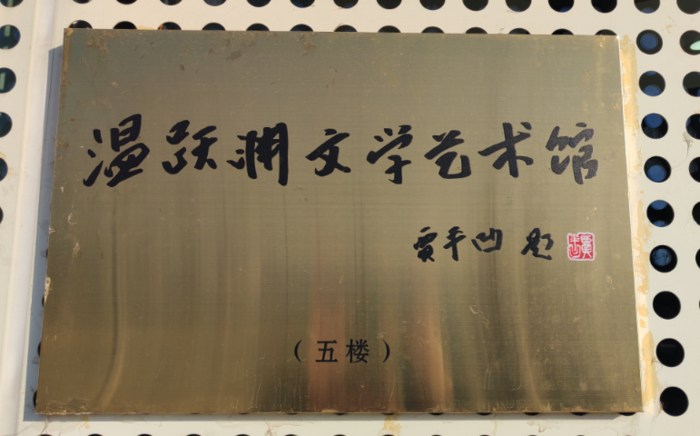 温跃渊文学艺术馆
贾平凹 题
（五楼）